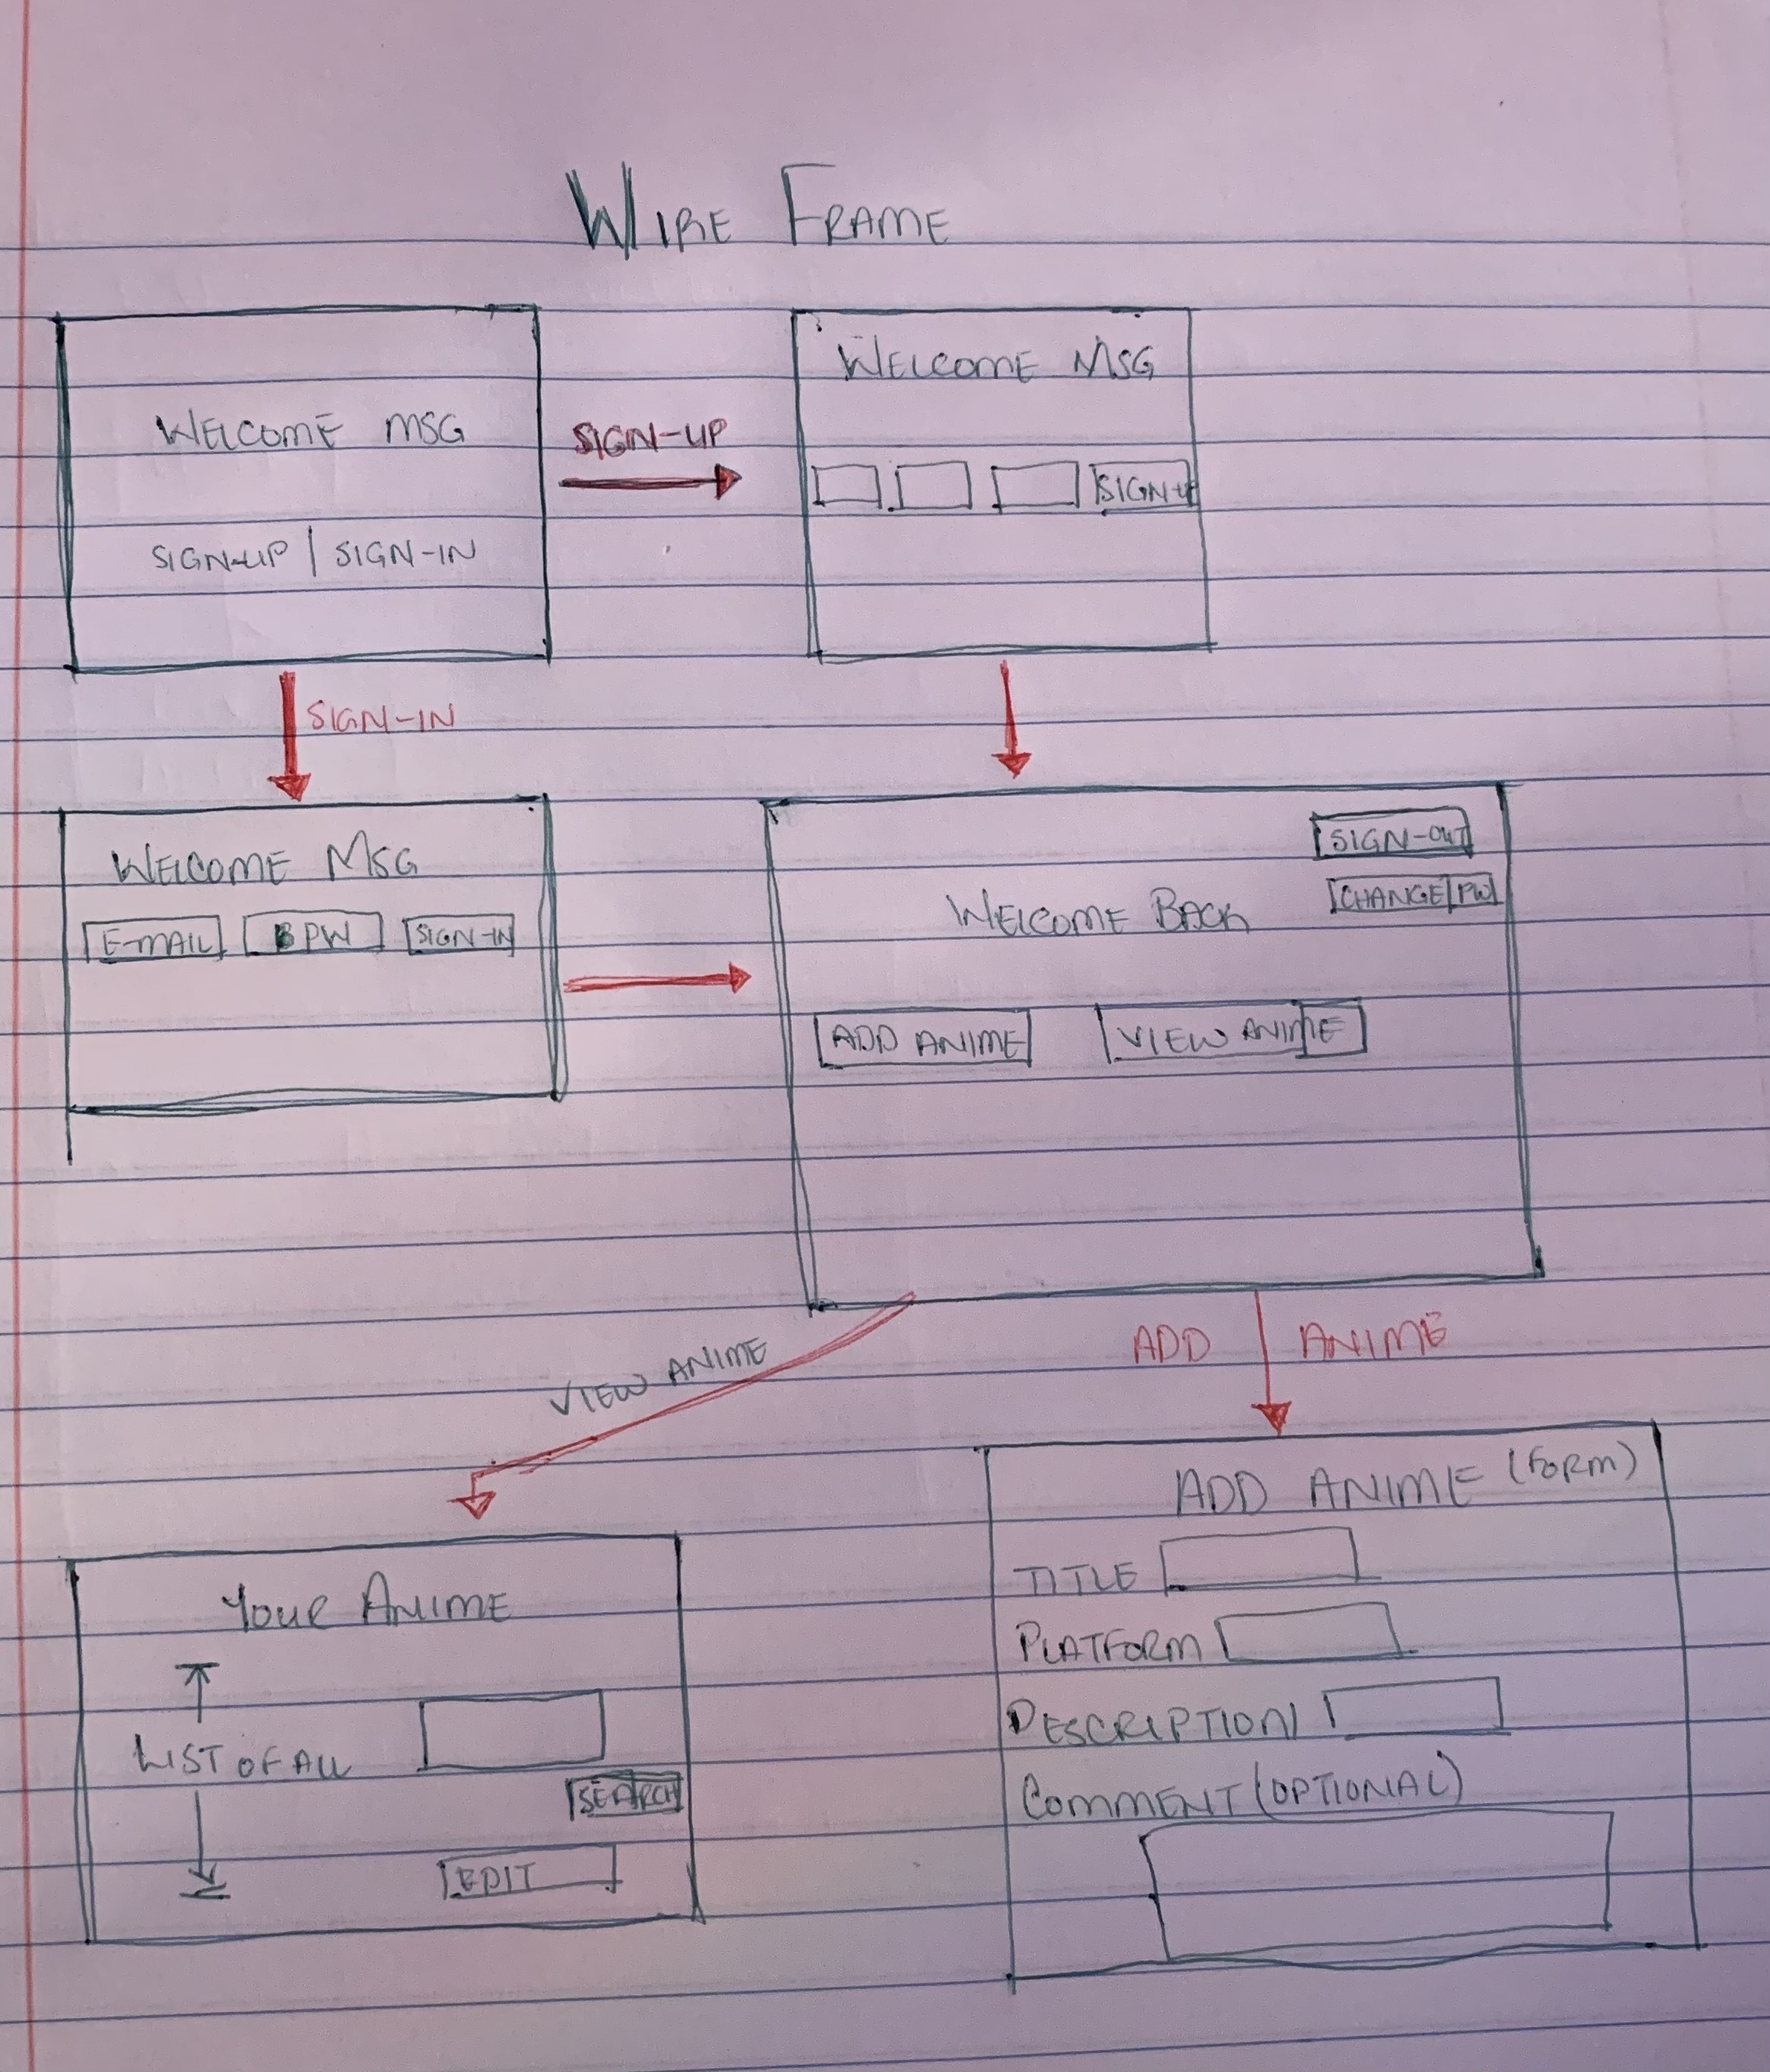 WIRE FRAME
WELCOME MSG
SIGN-UP | SIGN-IN
SIGN-UP
WELCOME MSG
SIGN-UP
SIGN-IN
WELCOME MSG
E-MAIL PW SIGN-IN
SIGN-OUT
CHANGE PW
WELCOME BACK
ADD ANIME VIEW ANIME
VIEW ANIME
ADD ANIME
YOUR ANIME
LIST OF ALL
SEARCH
EDIT
ADD ANIME (FORM)
TITLE
PLATFORM
DESCRIPTION
COMMENT (OPTIONAL)